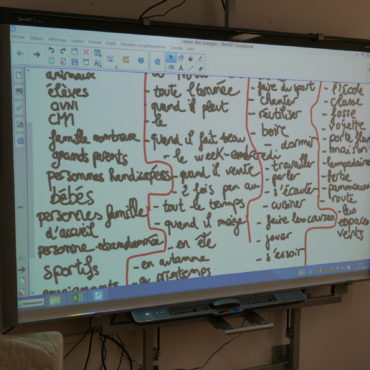 SMART
animaux
élèves
ovni
CM1
grands parents
personnes handicapées
bébés
personnes famille
d'accueil
personne abandonnée
sportifs
- toute l'année
- quand il pleut
- le
- quand il fait beau
- le week-end
- quand il vente
- 2 fois par an
- tout le temps
- quand il neige
- en été
- en automne
- au printemps
- faire du sport
- chanter
- réutiliser
- boire
- dormir
- travailler
- parler
- s'écouter
- cuisiner
- faire les courses
- jouer
- s'assoir
- l'école
- classe
- fosse
- maison
- lampadaire
- herbe
- panneaux
- route
- les
espaces
verts